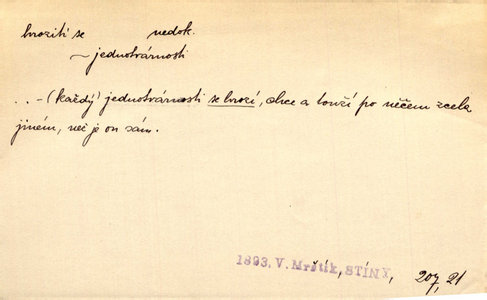 hroziti se nedok.
~ jednotvárnosti
. . – (každý) jednotvárnosti se hrozí, chce a touží po něčem zcela
jiném, než je on sám.
1893. V. Mrštík, STÍNY, 207, 21